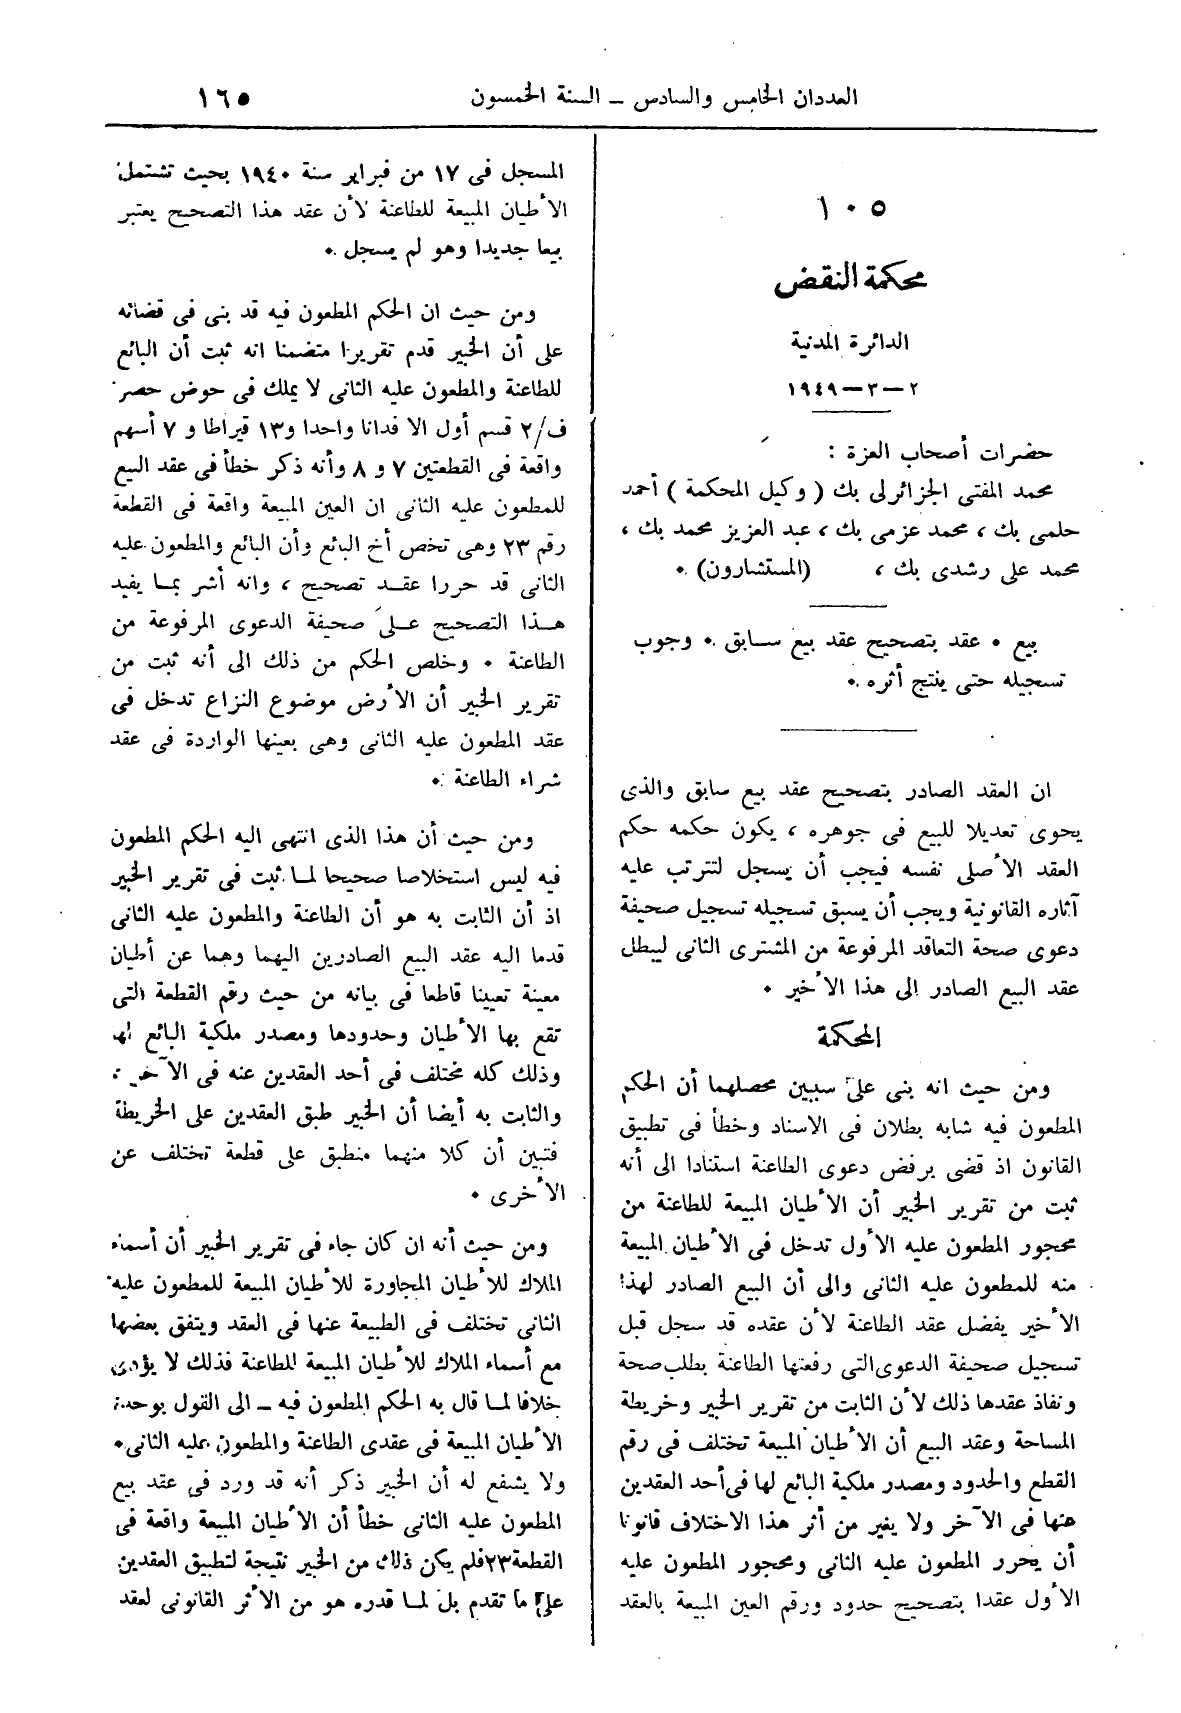 العددان الخامس والسادس – السنة الخمسون
١٦٥
١٠٥
محكمة النقض
الدائرة المدنية
٢ – ٣ – ١٩٤٩
حضرات أصحاب العزة :
محمد المفتى الجزائرلى بك ( وكيل المحكمة ) أحمد
حلمى بك ، محمد عزمى بك ، عبد العزيز محمد بك ،
محمد على رشدى بك ، (المستشارون) .
بيع . عقد بتصحيح عقد بيع سابق . وجوب
تسجيله حتى ينتج أثره .
ان العقد الصادر بتصحيح عقد بيع سابق والذى
يحوى تعديلا للبيع فى جوهره ، يكون حكمه حكم
العقد الأصلى نفسه فيجب أن يسجل لتترتب عليه
آثاره القانونية ويجب أن يسبق تسجيله تسجيل صحيفة
دعوى صحة التعاقد المرفوعة من المشترى الثانى ليبطل
عقد البيع الصادر الى هذا الأخير .
المحكمة
ومن حيث انه بنى على سببين محصلهما أن الحكم
المطعون فيه شابه بطلان فى الاسناد وخطأ فى تطبيق
القانون اذ قضى برفض دعوى الطاعنة استنادا الى أنه
ثبت من تقرير الخبير أن الأطيان المبيعة للطاعنة من
محجور المطعون عليه الأول تدخل فى الأطيان المبيعة
منه للمطعون عليه الثانى والى أن البيع الصادر لهذا
الأخير يفضل عقد الطاعنة لأن عقده قد سجل قبل
تسجيل صحيفة الدعوى التى رفعتها الطاعنة بطلب صحة
ونفاذ عقدها ذلك لأن الثابت من تقرير الخبير وخريطة
المساحة وعقد البيع أن الأطيان المبيعة تختلف فى رقم
القطع والحدود ومصدر ملكية البائع لها فى أحد العقدين
عنها فى الآخر ولا يغير من أثر هذا الاختلاف قانونا
أن يحرر المطعون عليه الثانى ومحجور المطعون عليه
الأول عقدا بتصحيح حدود ورقم العين المبيعة بالعقد
المسجل فى ١٧ من فبراير سنة ١٩٤٠ بحيث تشتمل
الأطيان المبيعة للطاعنة لأن عقد هذا التصحيح يعتبر
بيعا جديدا وهو لم يسجل .
ومن حيث ان الحكم المطعون فيه قد بنى فى قضائه
على أن الخبير قدم تقريرا متضمنا انه ثبت أن البائع
للطاعنة والمطعون عليه الثانى لا يملك فى حوض حصر
ف/٢ قسم أول الا فدانا واحدا و١٣ قيراطا و ٧ أسهم
واقعة فى القطعتين ٧ و ٨ وأنه ذكر خطأ فى عقد البيع
للمطعون عليه الثانى ان العين المبيعة واقعة فى القطعة
رقم ٢٣ وهى تخص أخ البائع وأن البائع والمطعون عليه
الثانى قد حررا عقد تصحيح ، وانه أشر بما يفيد
هذا التصحيح على صحيفة الدعوى المرفوعة من
الطاعنة . وخلص الحكم من ذلك الى أنه ثبت من
تقرير الخبير أن الأرض موضوع النزاع تدخل فى
عقد المطعون عليه الثانى وهى بعينها الواردة فى عقد
شراء الطاعنة .
ومن حيث أن هذا الذى انتهى اليه الحكم المطعون
فيه ليس استخلاصا صحيحا لما ثبت فى تقرير الخبير
اذ أن الثابت به هو أن الطاعنة والمطعون عليه الثانى
قدما اليه عقد البيع الصادرين اليهما وهما عن أطيان
معينة تعيينا قاطعا فى بيانه من حيث رقم القطعة التى
تقع بها الأطيان وحدودها ومصدر ملكية البائع لها
وذلك كله مختلف فى أحد العقدين عنه فى الآخر .
والثابت به أيضا أن الخبير طبق العقدين على الخريطة
فتبين أن كلا منهما منطبق على قطعة تختلف عن
الأخرى .
ومن حيث أنه ان كان جاء فى تقرير الخبير أن أسماء
الملاك للأطيان المجاورة للأطيان المبيعة للمطعون عليه
الثانى تختلف فى الطبيعة عنها فى العقد ويتفق بعضها
مع أسماء الملاك للأطيان المبيعة للطاعنة فذلك لا يؤدى
خلافا لما قال به الحكم المطعون فيه – الى القول بوحدة
الأطيان المبيعة فى عقدى الطاعنة والمطعون عليه الثانى .
ولا يشفع له أن الخبير ذكر أنه قد ورد فى عقد بيع
المطعون عليه الثانى خطأ أن الأطيان المبيعة واقعة فى
القطعة ٢٣ فلم يكن ذلك من الخبير نتيجة لتطبيق العقدين
على ما تقدم بل لما قدره هو من الأثر القانونى لعقد